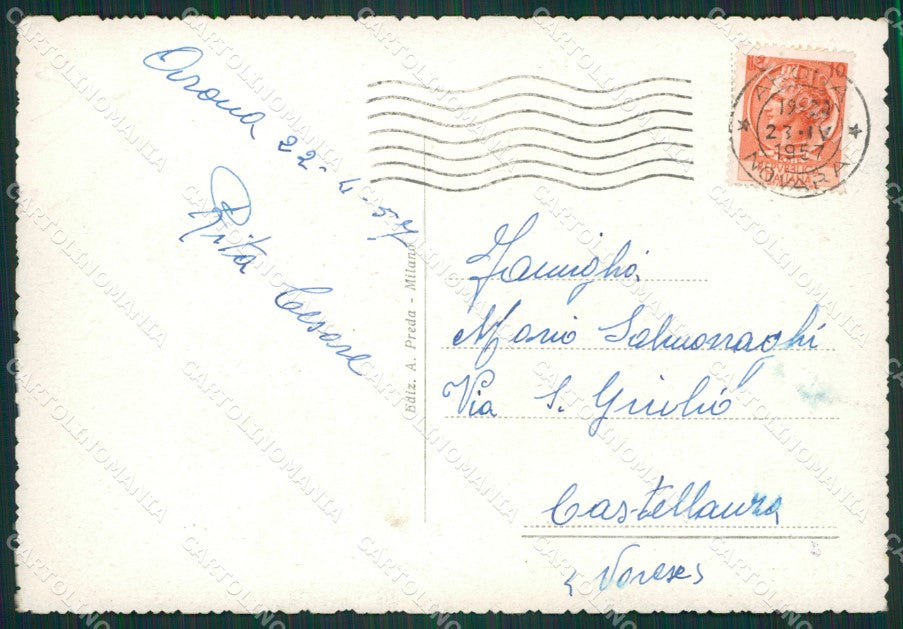 Arona 22-4-57
Rita Cesare
Ediz. A. Preda - Milano
10 10
19-20
23·IV
1957
NOVARA
ITALIANA
Famiglia
Mario Salmoraghi
Via S. Giulio
Castellanza
(Varese)
CARTOLINOMANIA